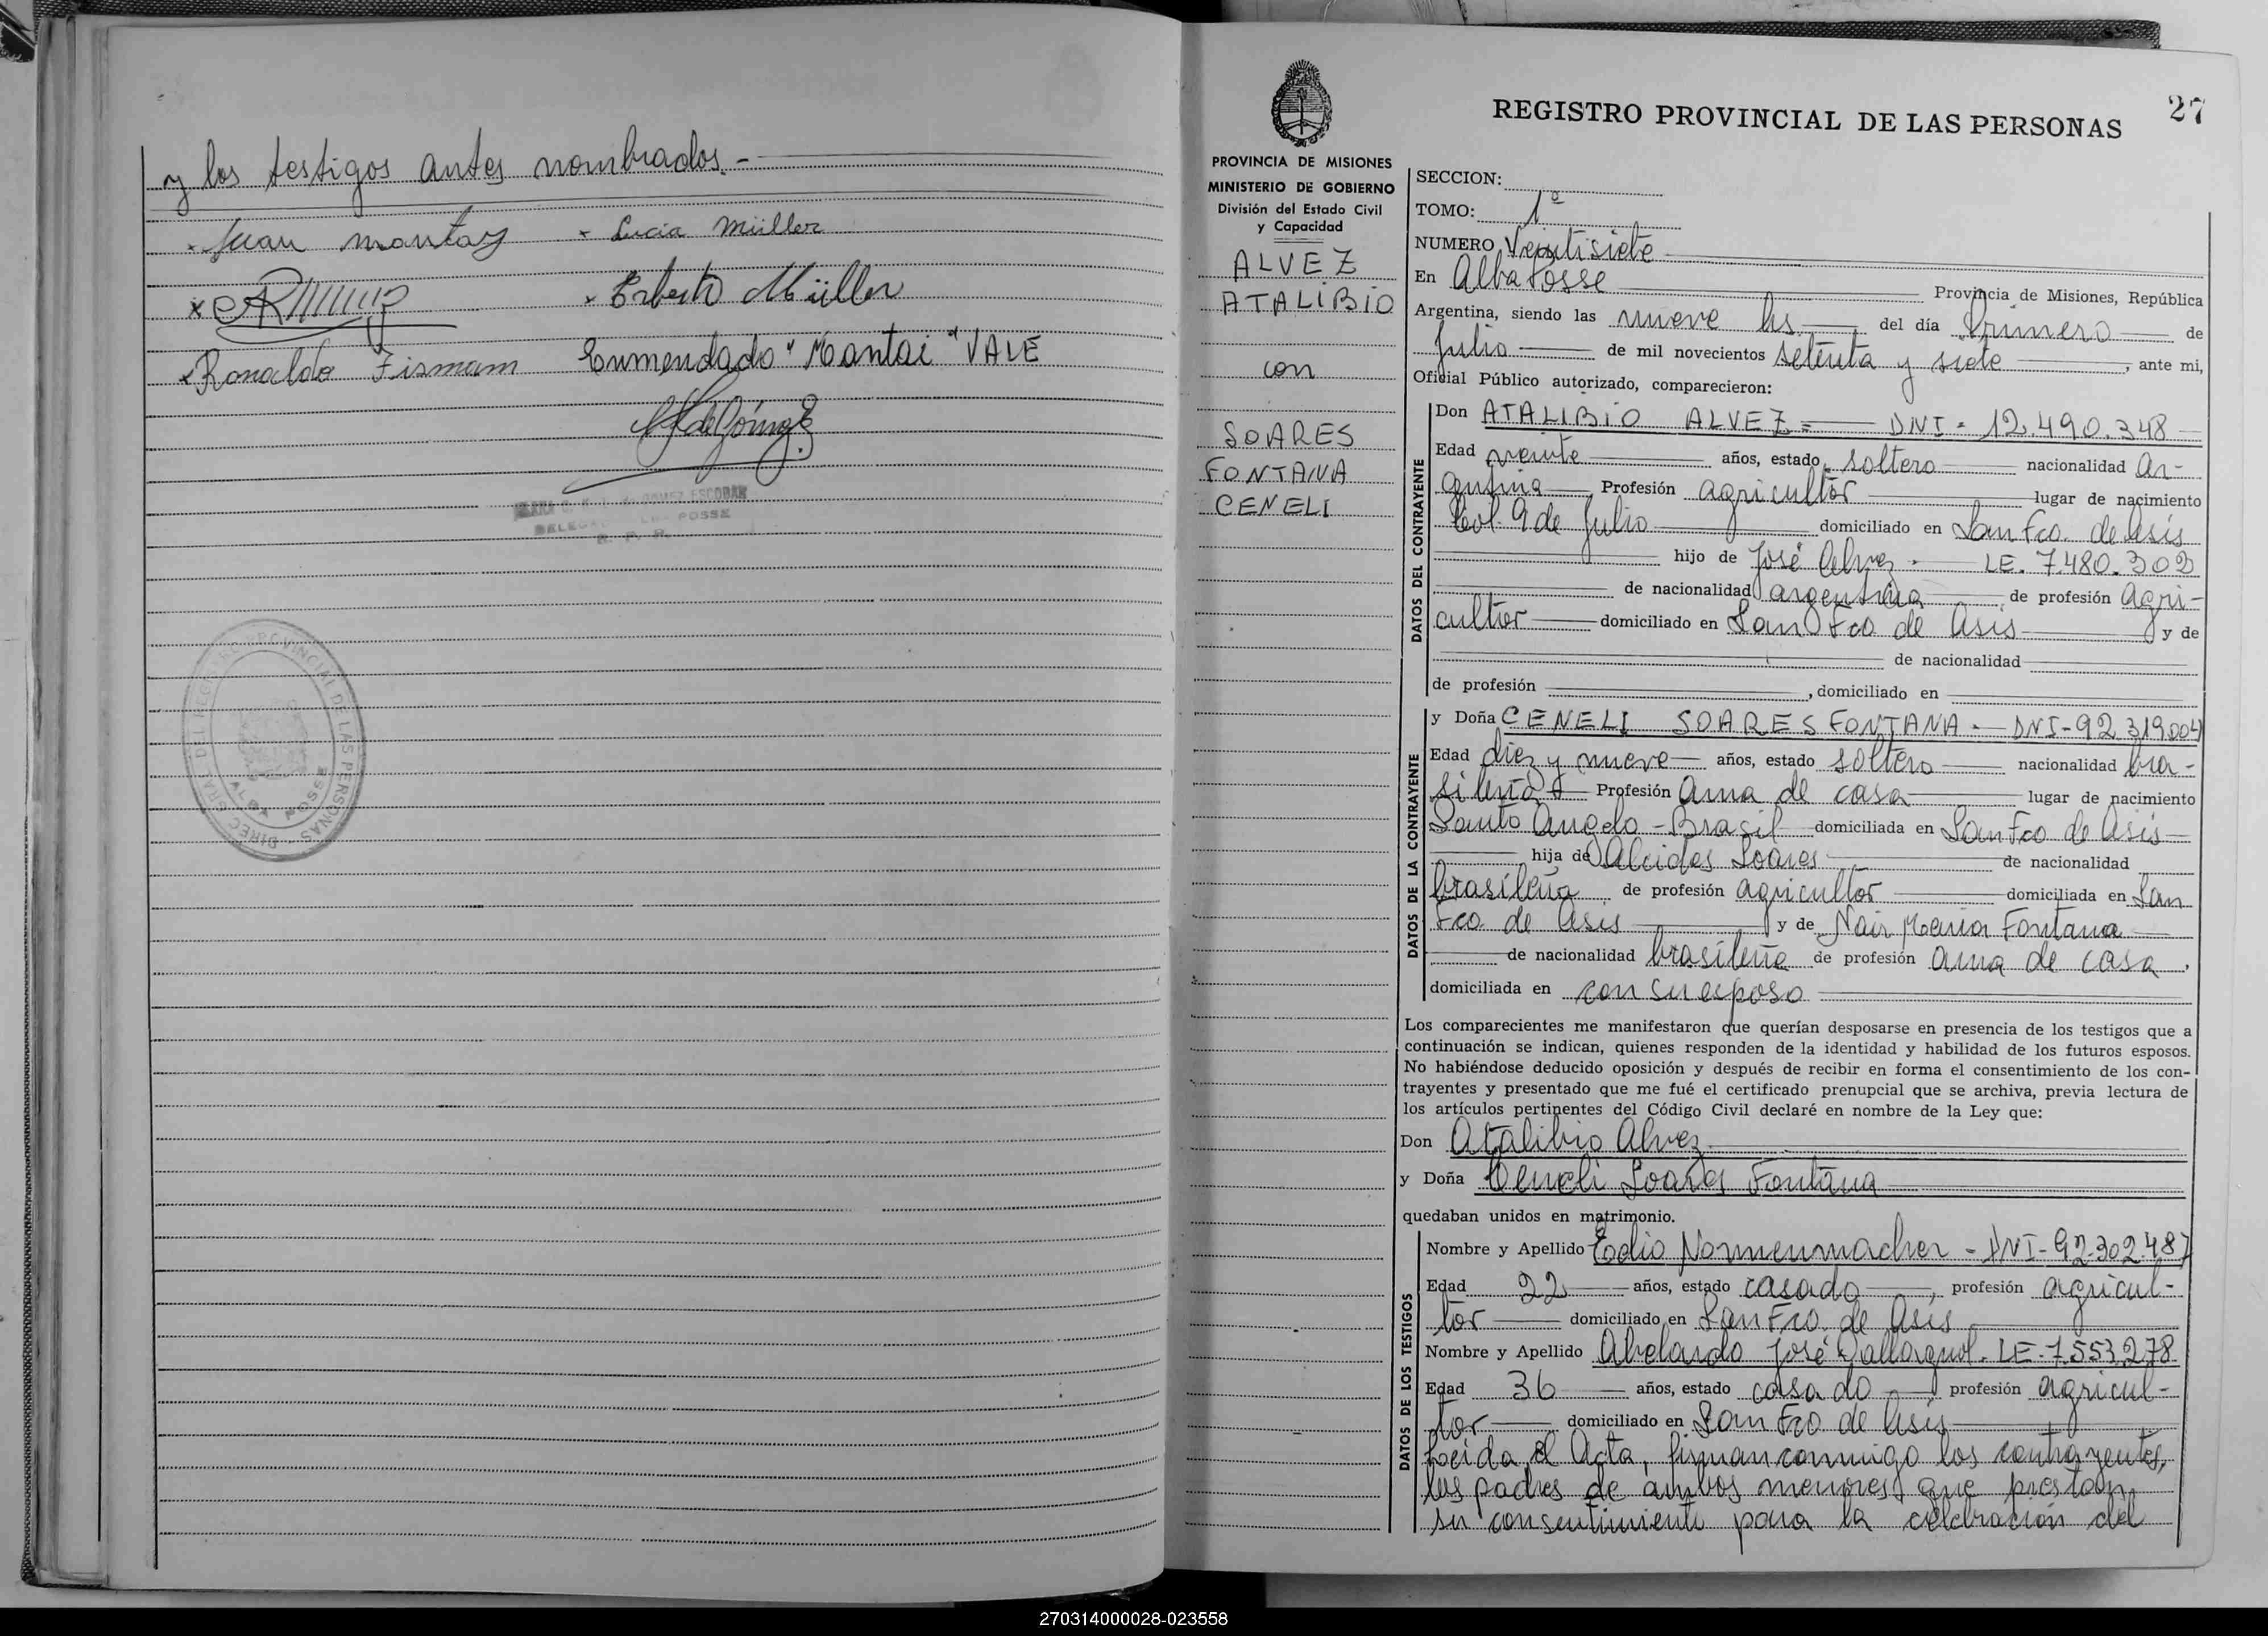 y los testigos antes nombrados.-
Juan mantay x Lucia Müller
x Erberto Müller
x Ronaldo Fismam Enmendado "Mantai" VALE
DELEGAC POSSE
R. P. P.
DIREC GRAL DEL REGISTRO PROVINCIAL DE LAS PERSONAS
ALBA POSSE
27
REGISTRO PROVINCIAL DE LAS PERSONAS
PROVINCIA DE MISIONES
MINISTERIO DE GOBIERNO
División del Estado Civil
y Capacidad
ALVEZ
ATALIBIO
con
SOARES
FONTANA
CENELI
SECCION:
TOMO: 1º
NUMERO Veintisiete
En Alba Posse Provincia de Misiones, República
Argentina, siendo las nueve hs del día Primero de
Julio de mil novecientos setenta y siete, ante mi,
Oficial Público autorizado, comparecieron:
DATOS DEL CONTRAYENTE
Don ATALIBIO ALVEZ = DNI - 12.490.348
Edad veinte años, estado soltero nacionalidad ar-
gentina Profesión agricultor lugar de nacimiento
Col. 9 de Julio domiciliado en San Fco. de Asís
hijo de José Alvez - LE. 7.480.302
de nacionalidad argentina de profesión agri-
cultor domiciliado en San Fco de Asís y de
de nacionalidad
de profesión , domiciliado en
DATOS DE LA CONTRAYENTE
y Doña CENELI SOARES FONTANA - DNI-92.319.004
Edad diez y nueve años, estado soltera nacionalidad bra-
sileña Profesión Ama de casa lugar de nacimiento
Santo Angelo - Brasil domiciliada en San Fco de Asís
hija de Alcides Soares de nacionalidad
brasileña de profesión agricultor domiciliada en San
Fco. de Asís y de Nair Maria Fontana
de nacionalidad brasileña de profesión ama de casa,
domiciliada en con su esposo
Los comparecientes me manifestaron que querían desposarse en presencia de los testigos que a
continuación se indican, quienes responden de la identidad y habilidad de los futuros esposos.
No habiéndose deducido oposición y después de recibir en forma el consentimiento de los con-
trayentes y presentado que me fué el certificado prenupcial que se archiva, previa lectura de
los artículos pertinentes del Código Civil declaré en nombre de la Ley que:
Don Atalibio Alvez
y Doña Ceneli Soares Fontana
quedaban unidos en matrimonio.
DATOS DE LOS TESTIGOS
Nombre y Apellido Eodio Normenmacher - DNI-92.302.487
Edad 22 años, estado casado, profesión agricul-
tor domiciliado en San Fco. de Asís
Nombre y Apellido Abelardo José Dallagnol. LE-7.553.278
Edad 36 años, estado casado profesión agricul-
tor domiciliado en San Fco de Asís
Leida el Acta, firman conmigo los contrayentes,
los padres de ambos menores que prestan
su consentimiento para la celebración del
270314000028-023558